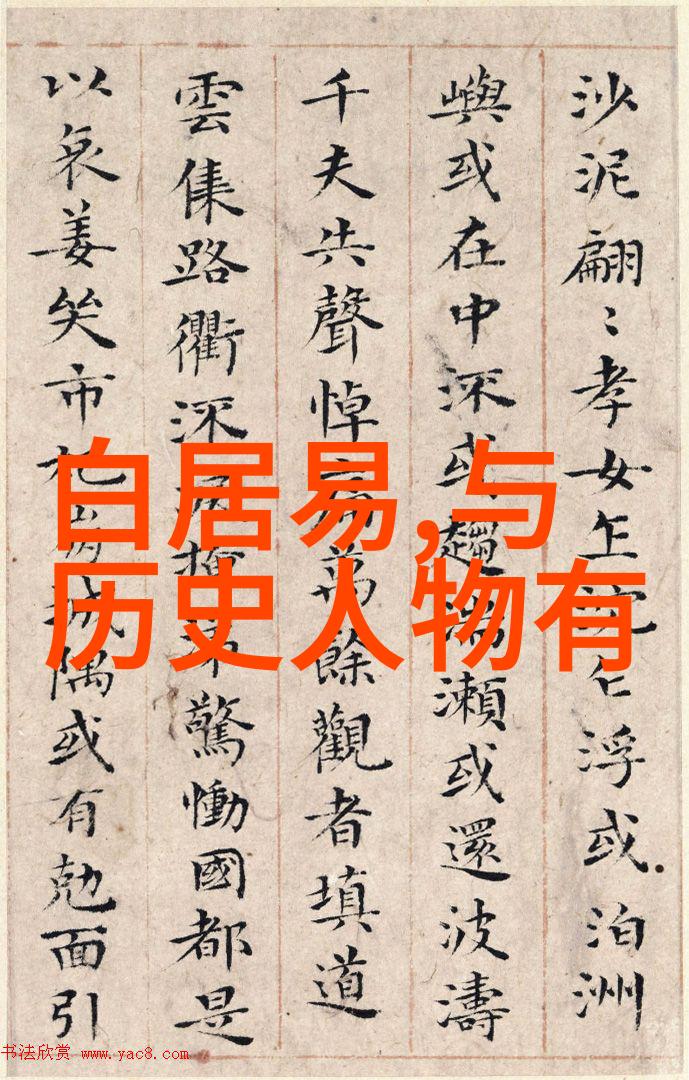 沙泥翩〻孝女乍沉乍浮或泊洲
嶼或在中深或趨湍瀬或還波濤
千夫共聲悼痛萬餘觀者填道
雲集路衢驚慟國都是
以哀姜哭市杞崩城隅或有勊面引
白居易,与
历史人物有
书法欣赏 www.yac8.com